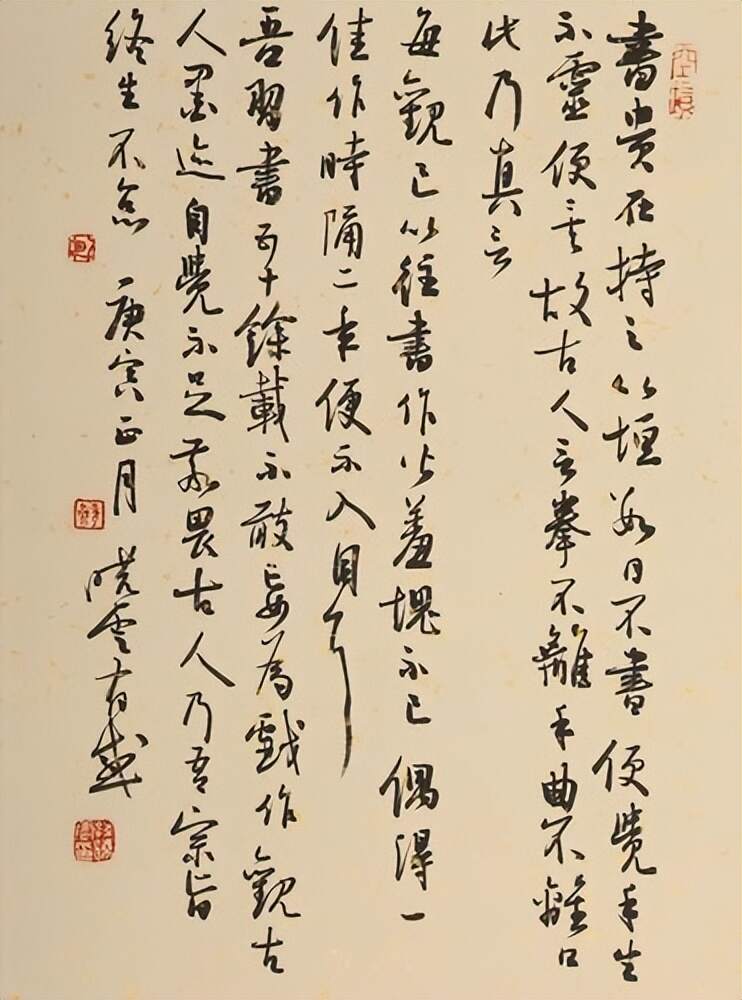 書貴在持之以恒數日不書便覺手生
不靈便矣故古人言拳不離手曲不離口
此乃真言
每觀己以往書作必羞愧不已偶得一
佳作時隔二年便不入目耳
吾習書五十餘載不敢妄為戲作觀古
人墨迹自覺不足敬畏古人乃吾宗旨
終生不怠 庚寅正月 曉雲有感